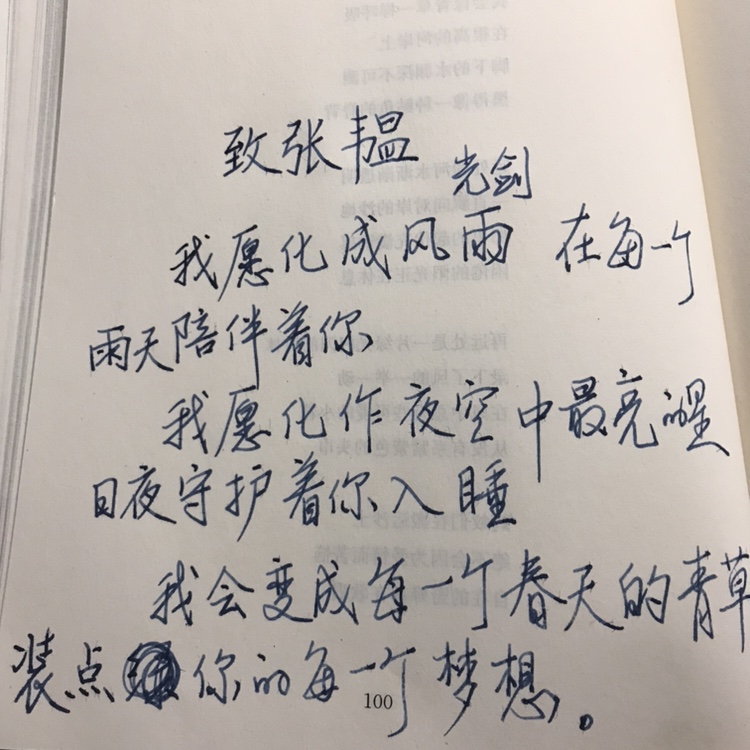 致张韫
光剑
我愿化成风雨 在每一个
雨天陪伴着你
我愿化作夜空中最亮的星
日夜守护着你入睡
我会变成每一个春天的青草
装点你的每一个梦想。
100